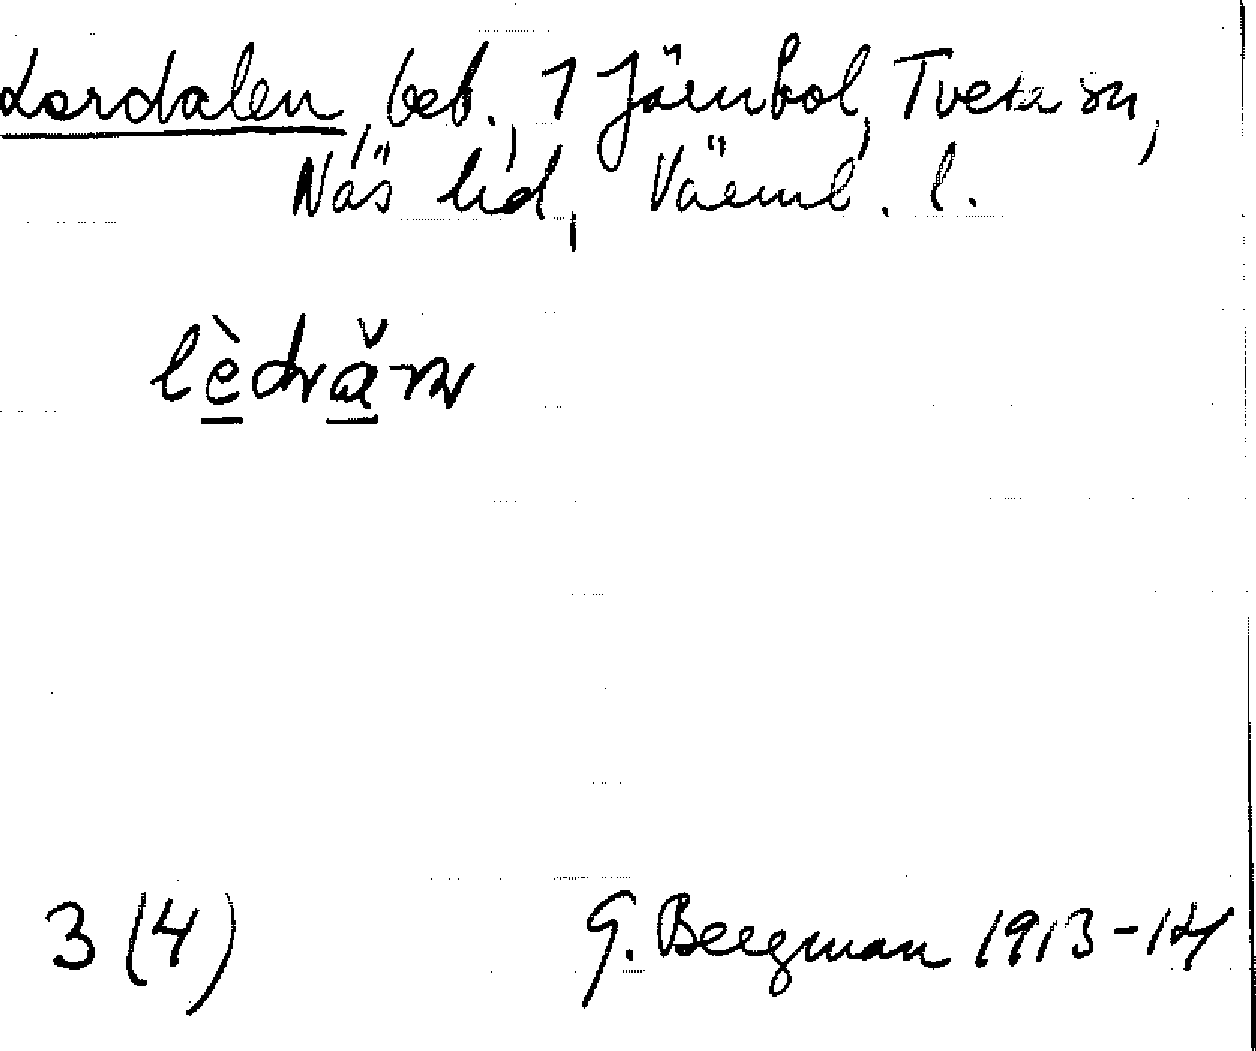 Lerdalen, beb., 1 Järnbol, Tveta sn,
Näs hd, Värml. l.
3 (4)
G. Bergman 1913-14